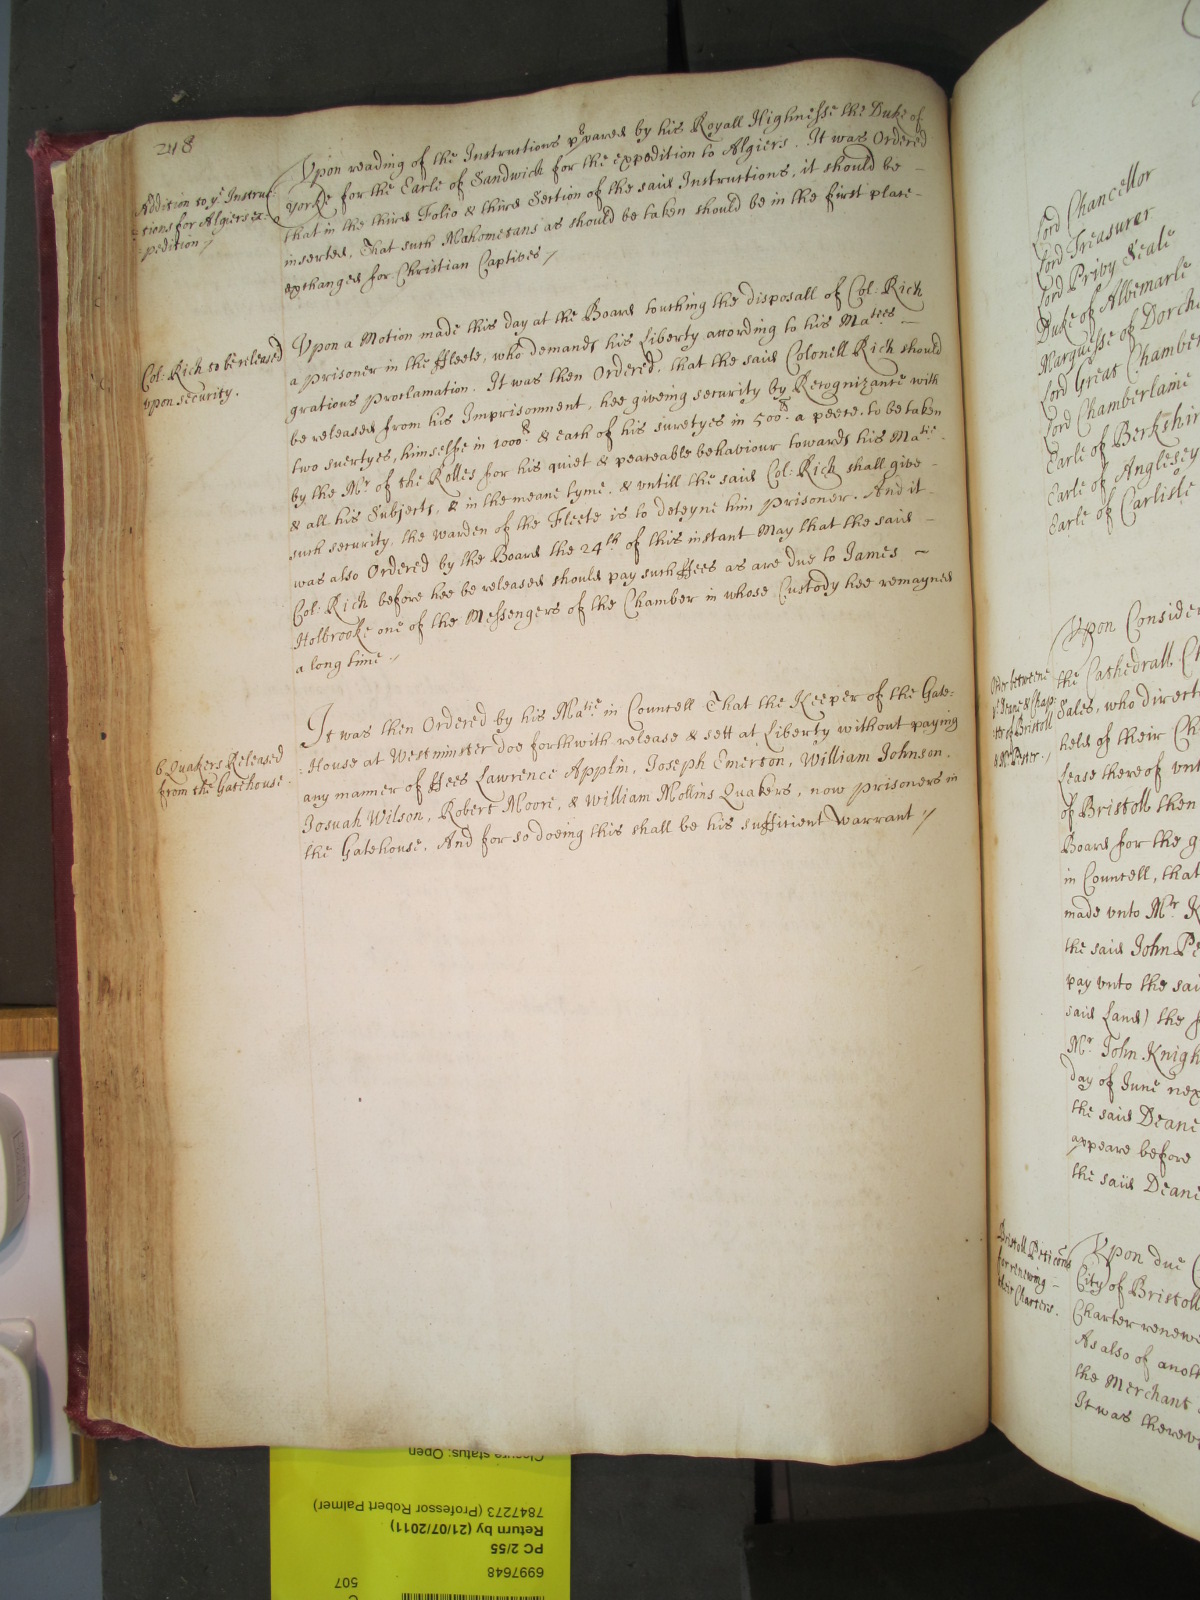 248
Addition to yᵉ Instruc-
-tions for Algiers ex-
-pedition /
Vpon reading of the Instructions pʳpared by his Royall Highnesse the Duke of
Yorke for the Earle of Sandwich for the expedition to Algiers. It was Ordered
that in the third Folio & third Section of the said Instructions, it should be -
inserted, That such Mahometans as should be taken should be in the first place -
exchanged for Christian Captives /
Col: Rich to be released
vpon security.
Vpon a Motion made this day at the Board touching the disposall of Col: Rich
a prisoner in the ffleete, who demands his Liberty according to his Maᵗᵉᵉˢ -
grations Proclamation. It was then Ordered, that the said Colonell Rich should
be released from his Imprisonment, hee giveing security by Recognizance with
two suertyes, himselfe in 1000ˡⁱ & each of his suretyes in 500ˡⁱ a peece, to be taken
by the Mʳ of the Rolles for his quiet & peaceable behaviour towards his Maᵗⁱᵉ -
& all his Subjects, & in the meane tyme, & vntill the said Col: Rich shall give -
such security, the Warden of the Fleete is to deteyne him Prisoner. And it -
was also Ordered by the Board the 24ᵗʰ of this instant May that the said -
Col: Rich before hee be released should pay such ffees as are due to James ~
Holbrooke one of the Messengers of the Chamber in whose Custody hee remayned
a long time /
6 Quakers Released
from the Gatehouse
It was then Ordered by his Maᵗⁱᵉ in Councell That the Keeper of the Gate:
:House at Westminster doe forthwith release & sett at Liberty without paying
any manner of ffees Lawrence Applin, Joseph Emerson, William Johnson,
Josuah Wilson, Robert Moore, & William Mollins Quakers, now prisoners in
the Gatehouse, And for so doeing this shall be his sufficient Warrant //
Lord Chancellor
Lord Treasurer
Lord Privy Seale
Duke of Albemarle
Marquesse of Dorch
Lord Great Chamber
Lord Chamberlaine
Earle of Berkshir
Earle of Anglesey
Earle of Carlisle
Order betweene
yᵉ Deane & Chap-
-ter of Bristoll
& Mʳ Peter /
Vpon Consider
the Cathedrall Ch
Sales, who direct
held of their Ch
lease thereof vnt
of Bristoll then
Board for the g
in Councell, that
made vnto Mʳ K
the said John Pe
pay vnto the sai
said Land) the f
Mʳ John Knigh
day of June nex
the said Deane
appeare before
the said Deane
Bristoll Peticõns
for renewing -
their Charters.
Vpon due C
City of Bristoll
Charter renewe
As also of anoth
the Merchant
It was therev
Closure status: Open
7847273 (Professor Robert Palmer)
Return by (21/07/2011)
PC 2/55
6997648
507